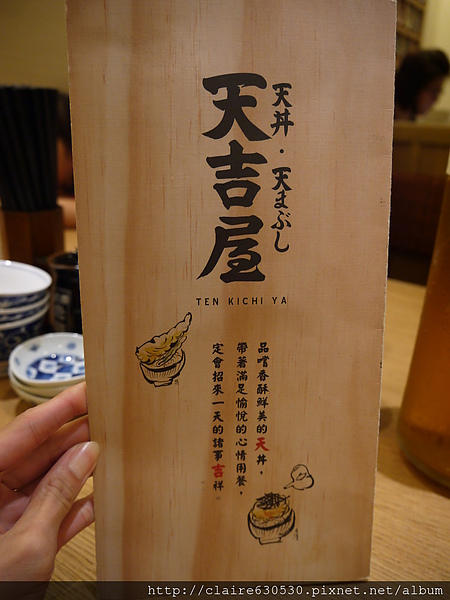 天丼・天まぶし
天吉屋
TEN KICHI YA
品嚐香酥鮮美的天丼，
帶著滿足愉悅的心情用餐，
定會招來一天的諸事吉祥
http://claire630530.pixnet.net/album